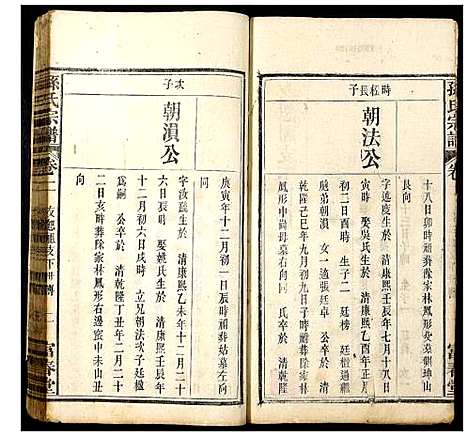 孫氏宗譜
卷
富春堂
十八日卯時頑葬餘家林鳳形父墓側坤山
艮向
時松長子
朝法公
字廷慶生於清康熙壬辰年七月十八日
寅時 娶吳氏生於 清康熙
初二日酉時 生子二 廷 廷
胞弟朝 女一適張廷卓 公卒於 清
乾隆己巳年九月初九日子時葬餘家林
鳳形中尚母墓右向同 氏卒於 清乾隆
同
庚寅年十二月初一日辰時祔葬姑墓左
次子
朝瀆公
字汝 生於清康熙乙未年十二月二十
六日辰時 娶姚氏生於 清康熙壬辰年
十二月初六日戌時 立兄朝法次子廷
為嗣 公卒於 清乾隆丁丑年二月二十
二日亥時葬餘家林鳳形右邊 中向丑山
向
孫氏宗譜
卷一
下世
二
富春堂